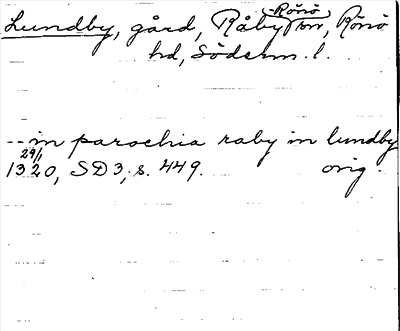 Lundby, gård, Råby-Rönö sn, Rönö
hd, Söderm. l.
-- in parochia raby in lundby
29/1 1320, SD3, s. 449. orig.